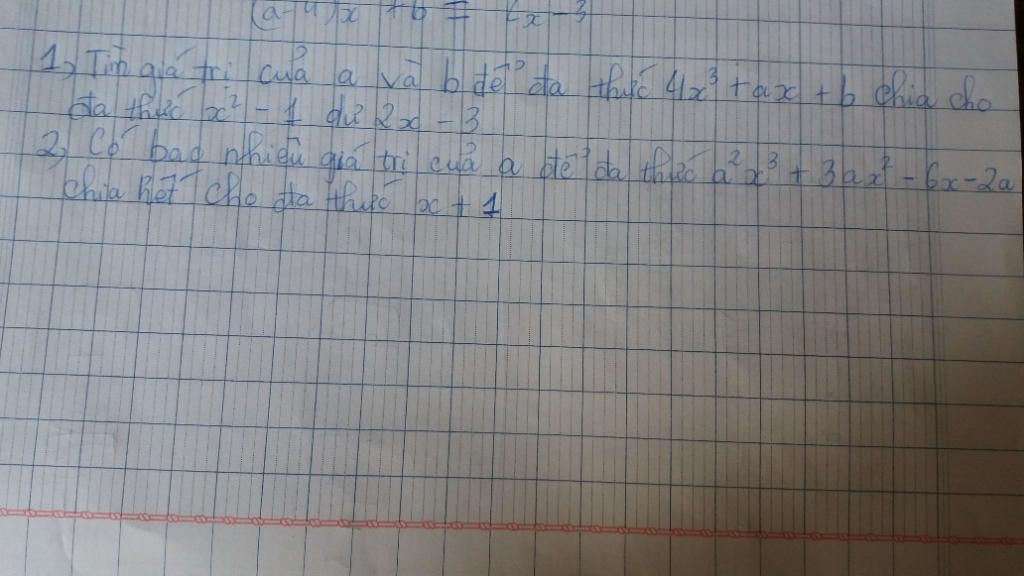 (a-4)x + b = 2x - 3
1, Tìm giá trị của a và b để đa thức 4x³ + ax + b chia cho
đa thức x² - 1 dư 2x - 3
2, Có bao nhiêu giá trị của a để đa thức a²x³ + 3ax² - 6x - 2a
chia hết cho đa thức x + 1